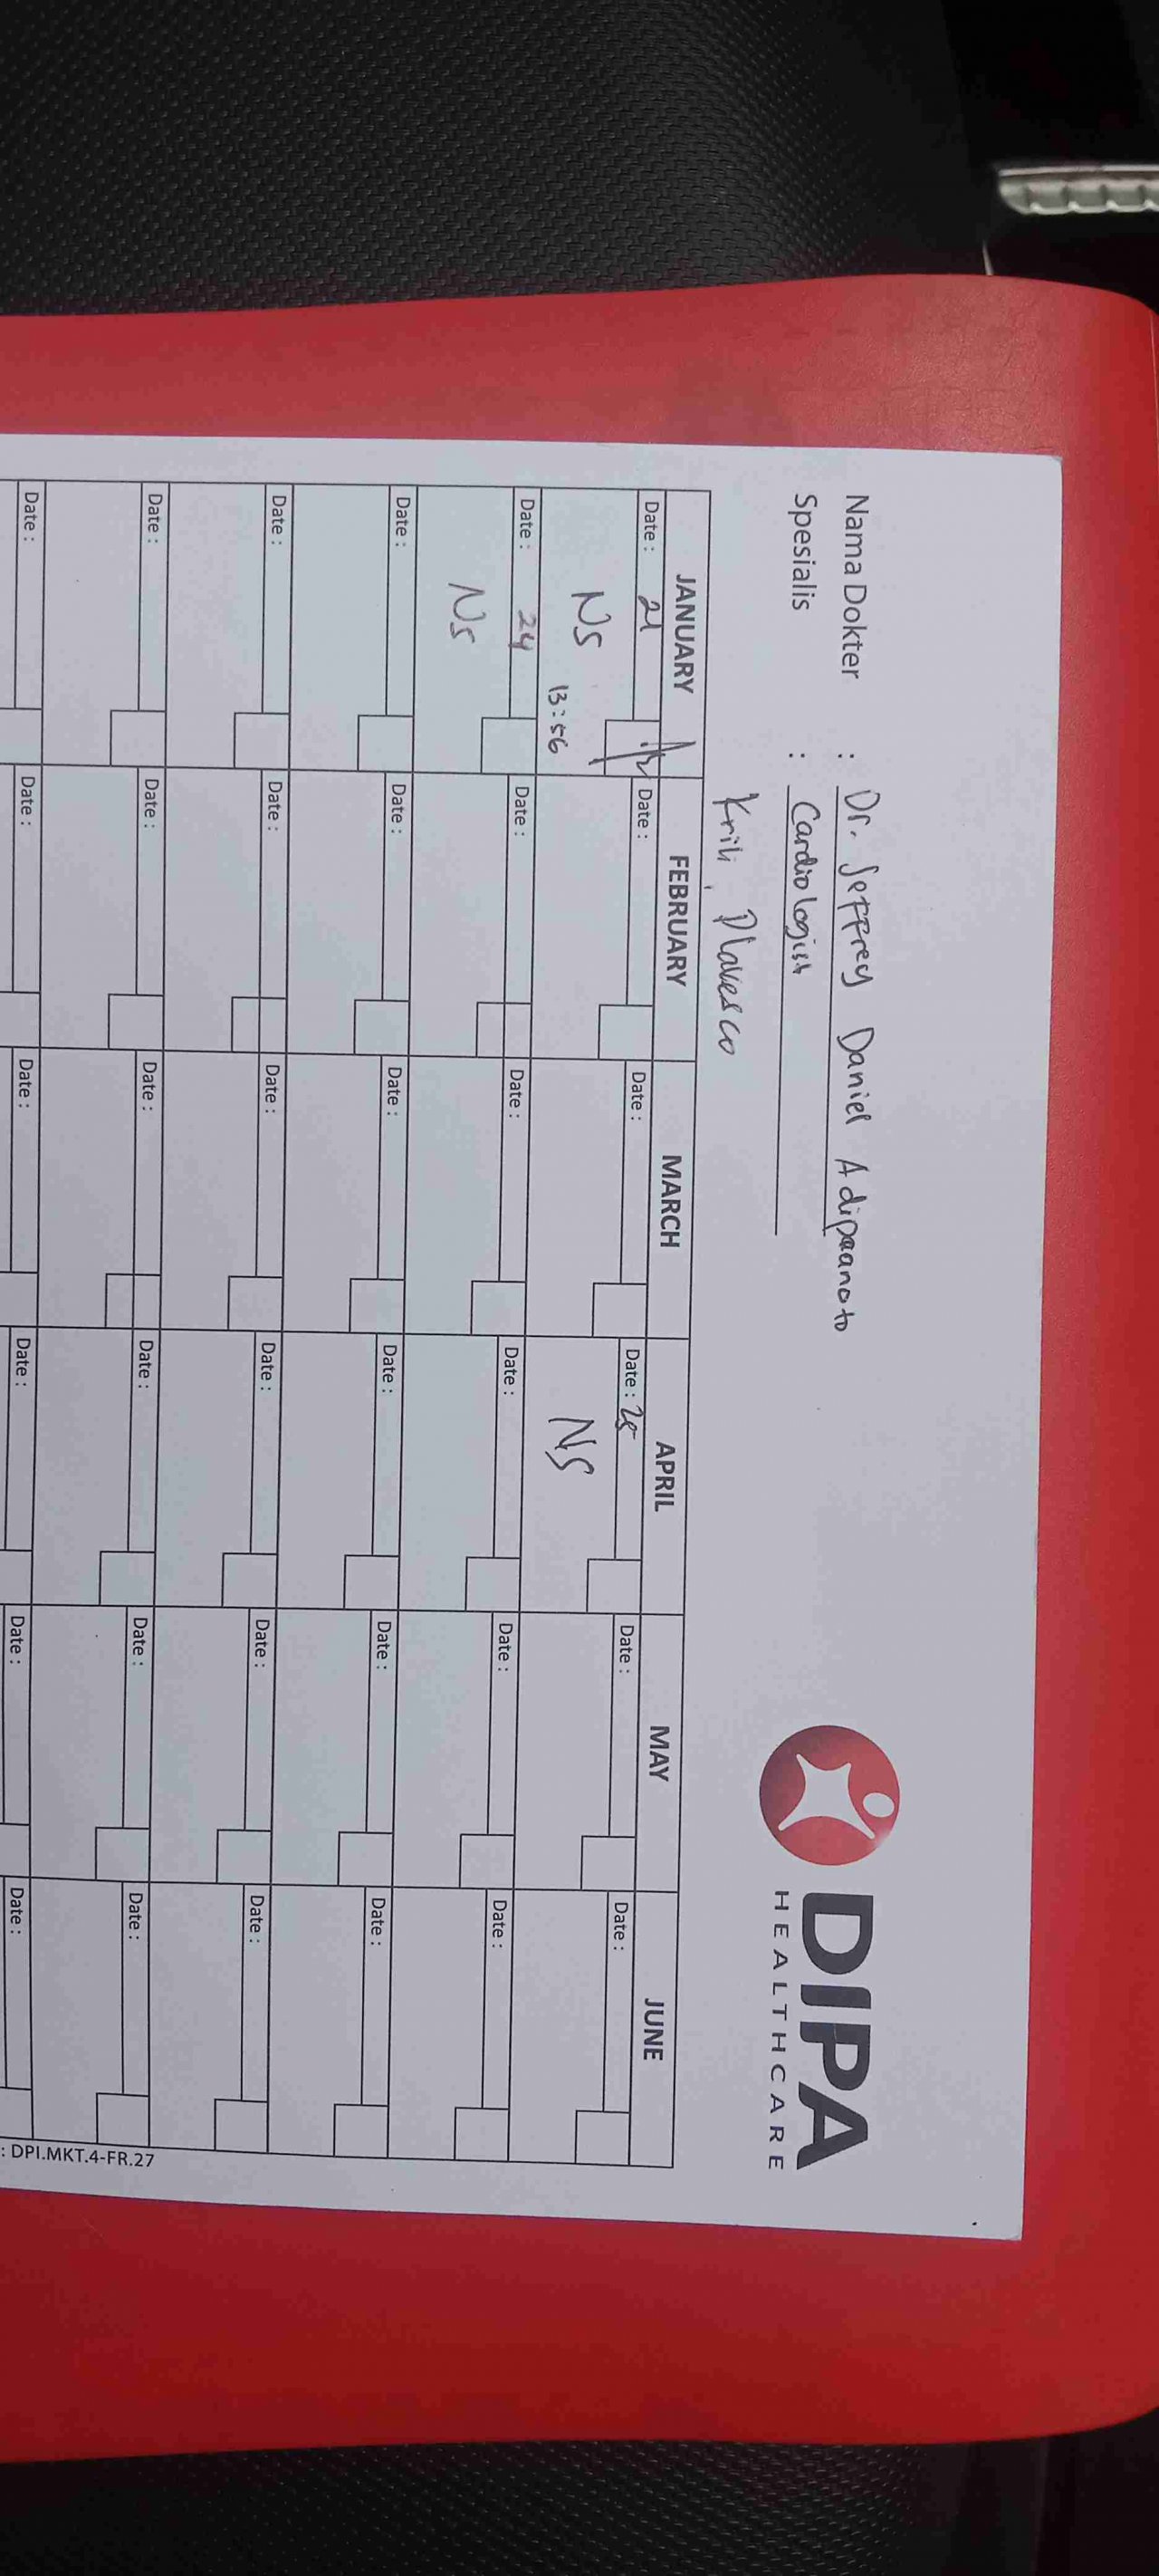 Nama Dokter : Dr. Jeffrey Daniel Adipranoto
Spesialis : Cardiologist
DIPA
HEALTHCARE
JANUARY FEBRUARY MARCH APRIL MAY JUNE
Date : 21 Date : Date : Date : 25 Date : Date :
NS NS
13:56
Date : 24 Date : Date : Date : Date : Date :
NS
Date : Date : Date : Date : Date : Date :
Date : Date : Date : Date : Date : Date :
Date : Date : Date : Date : Date : Date :
Date : Date : Date : Date : Date : Date :
: DPI.MKT.4-FR.27